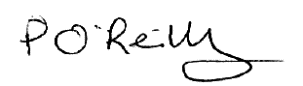 P O'Reilly